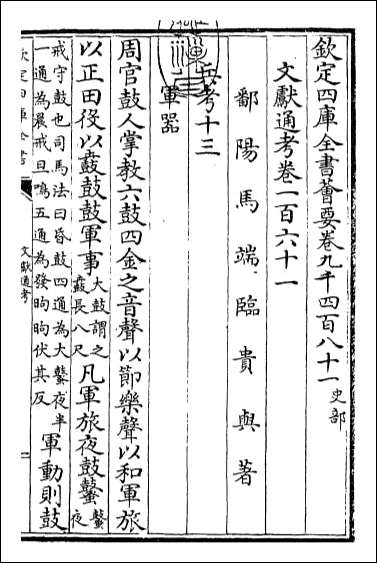 欽定四庫全書薈要卷九千四百八十一史部
文獻通考卷一百六十一
鄱陽馬端臨貴與著
兵考十三
軍器
周官鼓人掌教六鼓四金之音聲以節樂聲以和軍旅
以正田役以鼖鼓鼓軍事大鼓謂之鼖鼖長八尺凡軍旅夜鼓鼜鼜夜
戒守鼓也司馬法曰昏鼓四通為大鼜夜半一通為晨戒旦鳴五通為發昫昫伏其反軍動則鼓
文獻通考
一